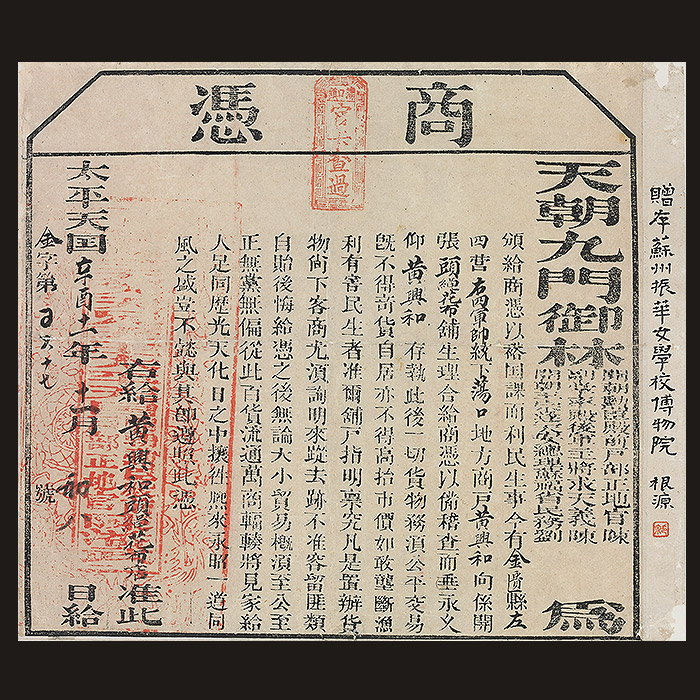 商憑
官卡查過
天朝九門御林
開朝勳臣殿前戶部正地官陳
殿後軍主將求天義陳
總理蘇省民務劉
為
頒給商憑以裕國課而利民生事今有金匱縣左
四營右四軍帥統下蕩口地方商戶黃興和向係開
張頭繩舖生理合給商憑以俻稽查而垂永久
仰黃興和存執此後一切貨物務湏公平交易
旣不得竒貨自居亦不得高抬市價如敢壟斷漁
利有害民生者准爾舖戶指明稟究凡是置辦貨
物尙下客商尤湏詢明來蹤去跡不准容留匪類
自貽後悔給憑之後無論大小貿易概湏至公至
正無黨無偏從此百貨流通萬商輻輳將見家給
人足同歴光天化日之中攘徃熈來永昭一道同
風之盛豈不懿與其卽遵照此憑
右給黃興和頭繩店准此
太平天囯辛酉十一年十一月初八日給
金字第六十七號
贈存蘇州振華女學校博物院 根源